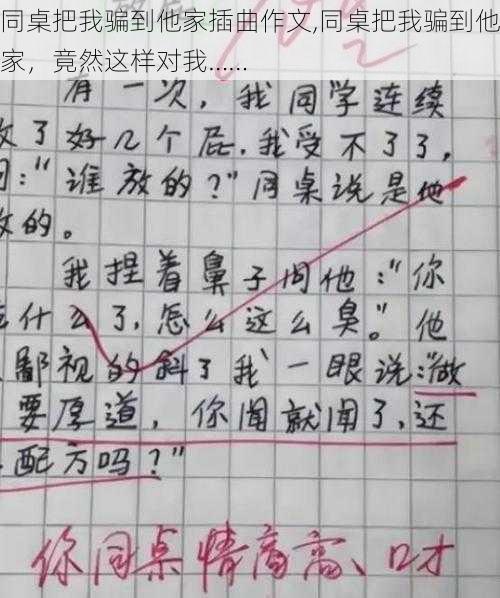 同桌把我骗到他家插曲作文,同桌把我骗到他
家，竟然这样对我......
有一次，我同学连续
放了好几个屁.我受不了了，
问："谁放的？"同桌说是他
放的。
我捏着鼻子问他："你
吃什么了，怎么这么臭。"他
鄙视的斜了我一眼说："做
要厚道，你闻就闻了，还
配方吗？"
你同桌情商高、口才